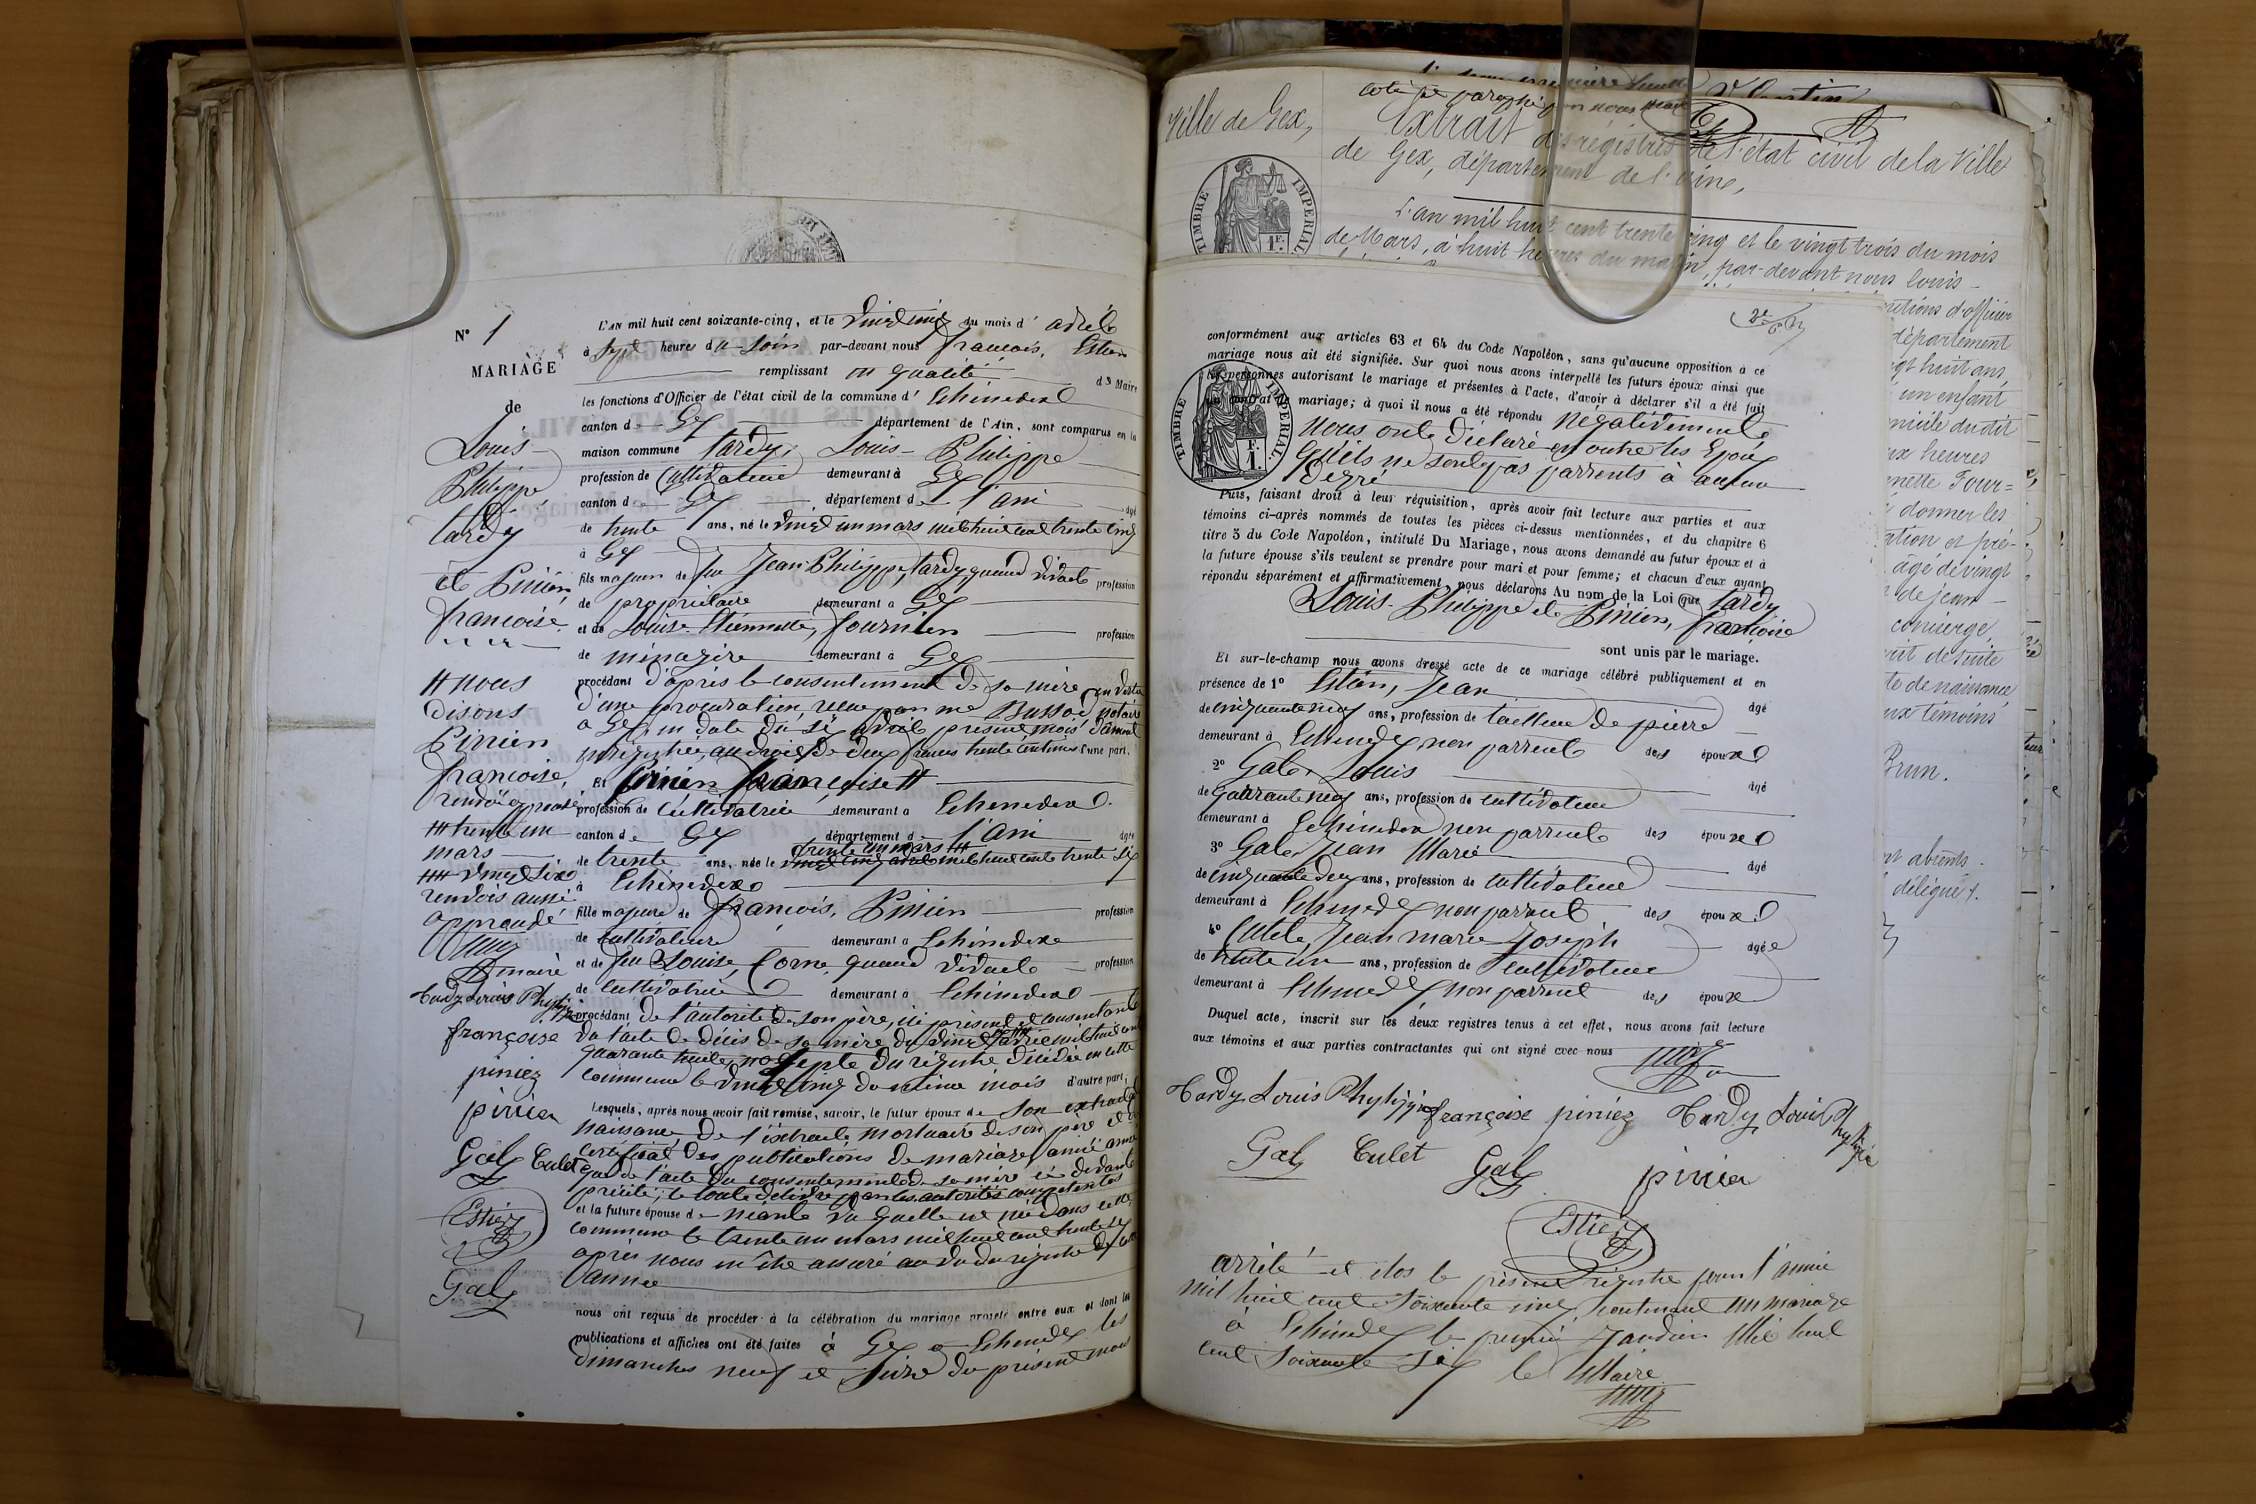 N° 1
MARIAGE
de
Louis
Philippe
tardy
et Pinien
françoise
# nous
disons
Pinien
françoise
mars
rendvois aussi
approuvé
maire
Tardy Louis Phylippe
françoise
piniez
pinien
Gal Culet
Estier
Gal
L'AN mil huit cent soixante-cinq, et le vingt cinq du mois d' avril
à sept heure du soir par-devant nous françois, Estier
remplissant en qualité de Maire
les fonctions d'Officier de l'état civil de la commune d' Echenevex
canton de Gex département de l'Ain, sont comparus en la
maison commune tardy, Louis Philippe
profession de Cultivateur demeurant à Gex
canton de Gex département de l'ain âgé
de trente ans, né le vingt un mars mil huit cent trente cinq
à Gex
fils majeur de feu Jean Philippe, tardy quand vivait profession
de propriétaire demeurant à Gex
et de Louise Etiennette, fournier profession
de ménagère demeurant à Gex
procédant d'après le consentement de sa mère en vertu
d'une procuration, reçue par me Bussod notaire
à Gex, en date du six avril présent mois d'ument
enregistrée, au droit de deux francs trente centimes d'une part.
Et Pinien françoise #
profession de Cultivatrice demeurant à Echenevex
canton de Gex département de l'ain âgée
trente un mars ##
de trente ans, née le vingt cinq avril mil huit cent trente six
à Echenevex
fille majeure de françois, Pinien profession
de cultivateur demeurant à Echenevex
et de feu Louise, Corne, quand vivait profession
de cultivatrice demeurant à Echenevex
procédant de l'autorité de son père, ici présent et consentant
du l'acte de décès de sa mère du vingt
quarante huit, n° sept du régistre décédée en cette
commune le vingt cinq du même mois d'autre part;
Lesquels, après nous avoir fait remise, savoir, le futur époux de son extrait de
naissance, de l'extrait mortuaire de son père et du
certificat des publications de mariage, année
que de l'acte du consentement de sa mère ci devant
précité; le tout délivré par les autorités compétentes
et la future épouse de néant vu quelle est née dans cette
commune le trente un mars mil huit cent trente six
après nous en être assuré au vu du régistre de
l'année
nous ont requis de procéder à la célébration du mariage projeté entre eux et dont les
publications et affiches ont été faites à Gex et Echenevex les
dimanches neuf et seize du présent mois
Ville de Gex,
coté et paraphé par nous
Extrait des régistres de l'état civil de la Ville
de Gex, département de l'Ain,
TIMBRE IMPERIAL
1 F.
L'an mil huit cent trente cinq et le vingt trois du mois
de Mars, à huit heures du matin, par-devant nous Louis
fonctions d'officier
département
vingt huit ans,
un enfant
domicile du dit
heures
donner les
âgé de vingt
de jean
concierge,
acte de naissance
aux témoins
Brun.
absents
délégué
conformément aux articles 63 et 64 du Code Napoléon, sans qu'aucune opposition à ce
mariage nous ait été signifiée. Sur quoi nous avons interpellé les futurs époux ainsi que
les personnes autorisant le mariage et présentes à l'acte, d'avoir à déclarer s'il a été fait
un contrat de mariage; à quoi il nous a été répondu négativement
TIMBRE IMPERIAL.
1 F.
nous ont déclaré en outre les Epoux
Qu'ils ne sont pas parrents à aucun
Dégré
Puis, faisant droit à leur réquisition, après avoir fait lecture aux parties et aux
témoins ci-après nommés de toutes les pièces ci-dessus mentionnées, et du chapitre 6
titre 5 du Code Napoléon, intitulé Du Mariage, nous avons demandé au futur époux et à
la future épouse s'ils veulent se prendre pour mari et pour femme; et chacun d'eux ayant
répondu séparément et affirmativement, nous déclarons Au nom de la Loi que tardy
Louis-Philippe et Pinien, françoise
sont unis par le mariage.
Et sur-le-champ nous avons dressé acte de ce mariage célébré publiquement et en
présence de 1° Estier, Jean âgé
de cinquante neuf ans, profession de tailleur de pierre
demeurant à Echenevex non parrent des époux
2° Gal, Louis âgé
de quarante neuf ans, profession de cultivateur
demeurant à Echenevex non parrent des époux
3° Gal, Jean Marie âgé
de cinquante deux ans, profession de cultivateur
demeurant à Echenevex non parrent des époux
4° Culet, Jean marie Joseph âgé
de trente un ans, profession de cultivateur
demeurant à Echenevex non parrent des époux
Duquel acte, inscrit sur les deux registres tenus à cet effet, nous avons fait lecture
aux témoins et aux parties contractantes qui ont signé avec nous
Tardy Louis Phylippe françoise piniez Tardy Louis Phylippe
Gal Culet Gal pinien
Estier
arrêté et clos le présent régistre pour l'année
mil huit cent soixante cinq, contenant un mariage
à Echenevex le premier Janvier Mil huit
cent soixante six le Maire